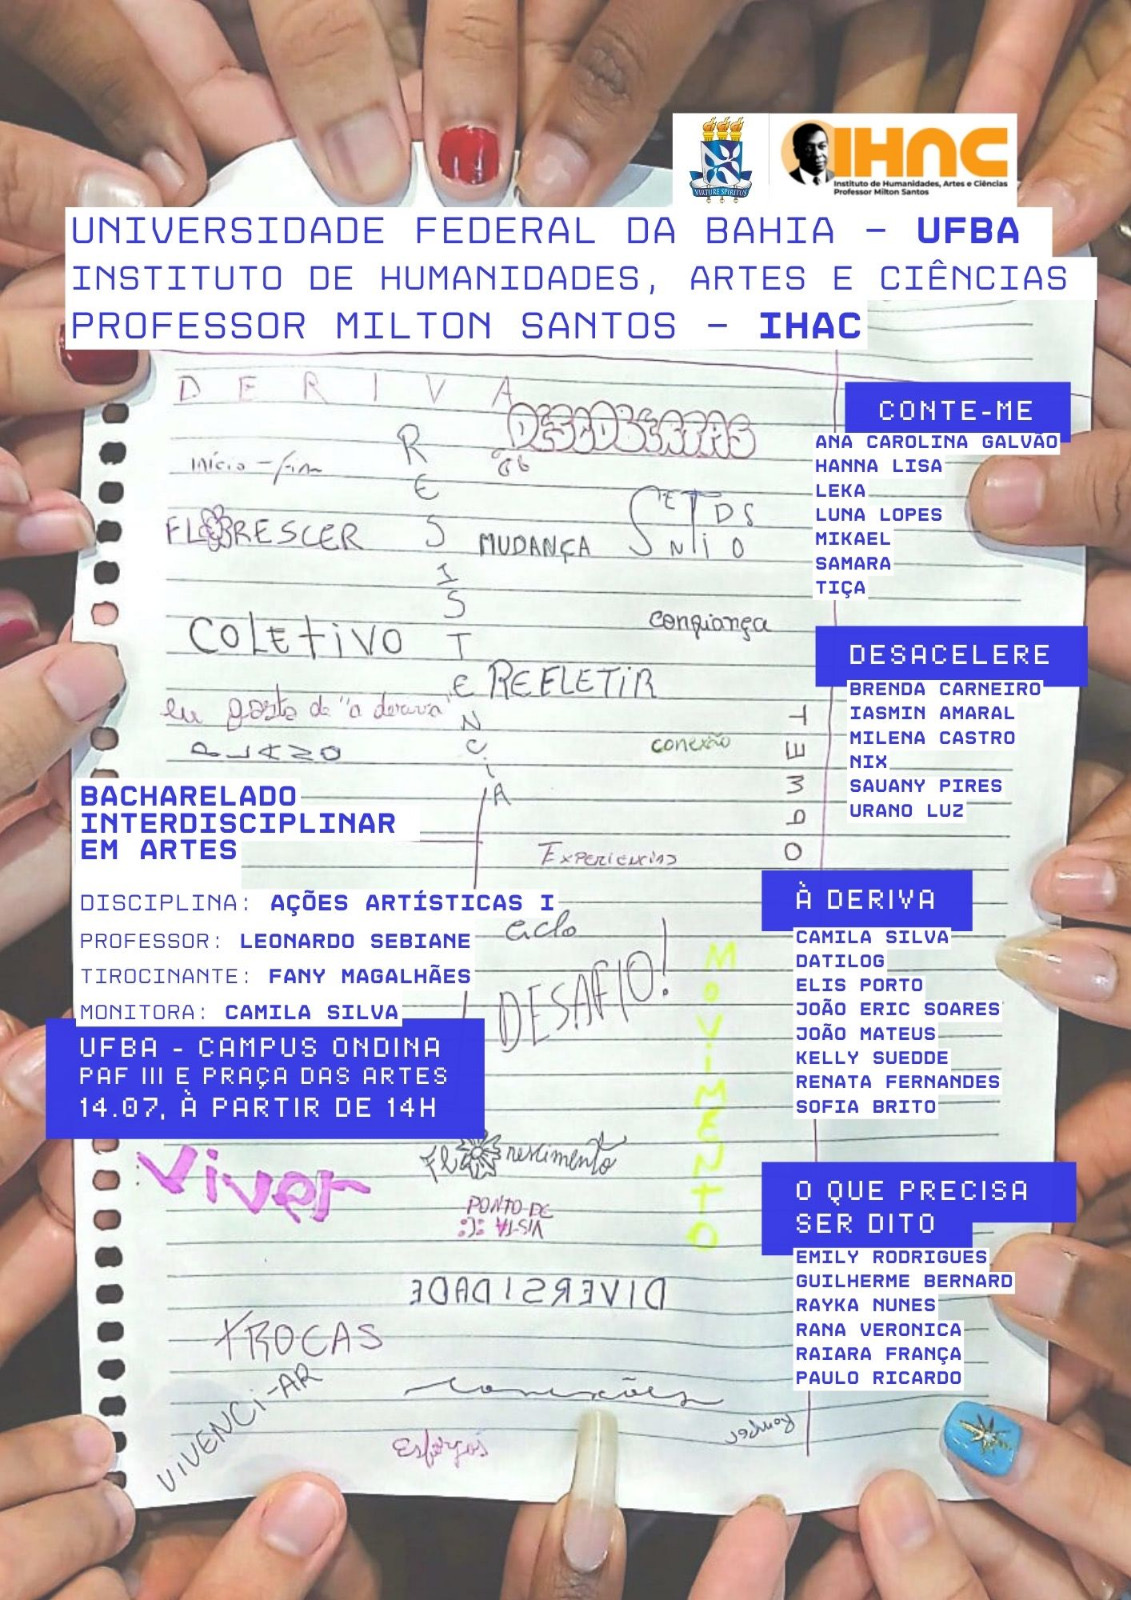 VIRTUTE SPIRITUS
IHAC
Instituto de Humanidades, Artes e Ciências
Professor Milton Santos
UNIVERSIDADE FEDERAL DA BAHIA – UFBA
INSTITUTO DE HUMANIDADES, ARTES E CIÊNCIAS
PROFESSOR MILTON SANTOS – IHAC
DERIVA
DESCOBERTAS
início - fim
RESISTÊNCIA
FLORESCER
MUDANÇA
SENTIDOS
COLETIVO
confiança
REFLETIR
eu gosto de "a deriva"
PLANO
conexão
TEMPO
Experiencias
ciclo
DESAFIO!
MOVIMENTO
BACHARELADO
INTERDISCIPLINAR
EM ARTES
DISCIPLINA: AÇÕES ARTÍSTICAS I
PROFESSOR: LEONARDO SEBIANE
TIROCINANTE: FANY MAGALHÃES
MONITORA: CAMILA SILVA
UFBA - CAMPUS ONDINA
PAF III E PRAÇA DAS ARTES
14.07, À PARTIR DE 14H
Viver
Florescimento
PONTO DE
VISTA :(:
DIVERSIDADE
TROCAS
VIVENCI-AR
conexões
Esforços
CONTE-ME
ANA CAROLINA GALVÃO
HANNA LISA
LEKA
LUNA LOPES
MIKAEL
SAMARA
TIÇA
DESACELERE
BRENDA CARNEIRO
IASMIN AMARAL
MILENA CASTRO
NIX
SAUANY PIRES
URANO LUZ
À DERIVA
CAMILA SILVA
DATILOG
ELIS PORTO
JOÃO ERIC SOARES
JOÃO MATEUS
KELLY SUEDDE
RENATA FERNANDES
SOFIA BRITO
O QUE PRECISA
SER DITO
EMILY RODRIGUES
GUILHERME BERNARD
RAYKA NUNES
RANA VERONICA
RAIARA FRANÇA
PAULO RICARDO